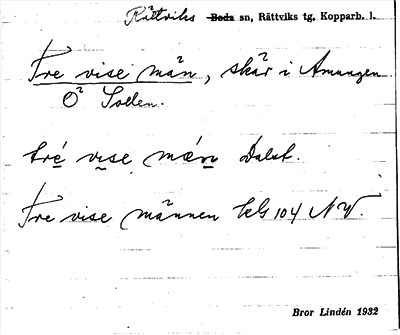 Rättviks Boda sn, Rättviks tg, Kopparb. l.
Tre vise män, skär i Amungen
O² Sollen.
tré vise mæn Dalst.
Tre vise männen kls 104 NV.
Bror Lindén 1932